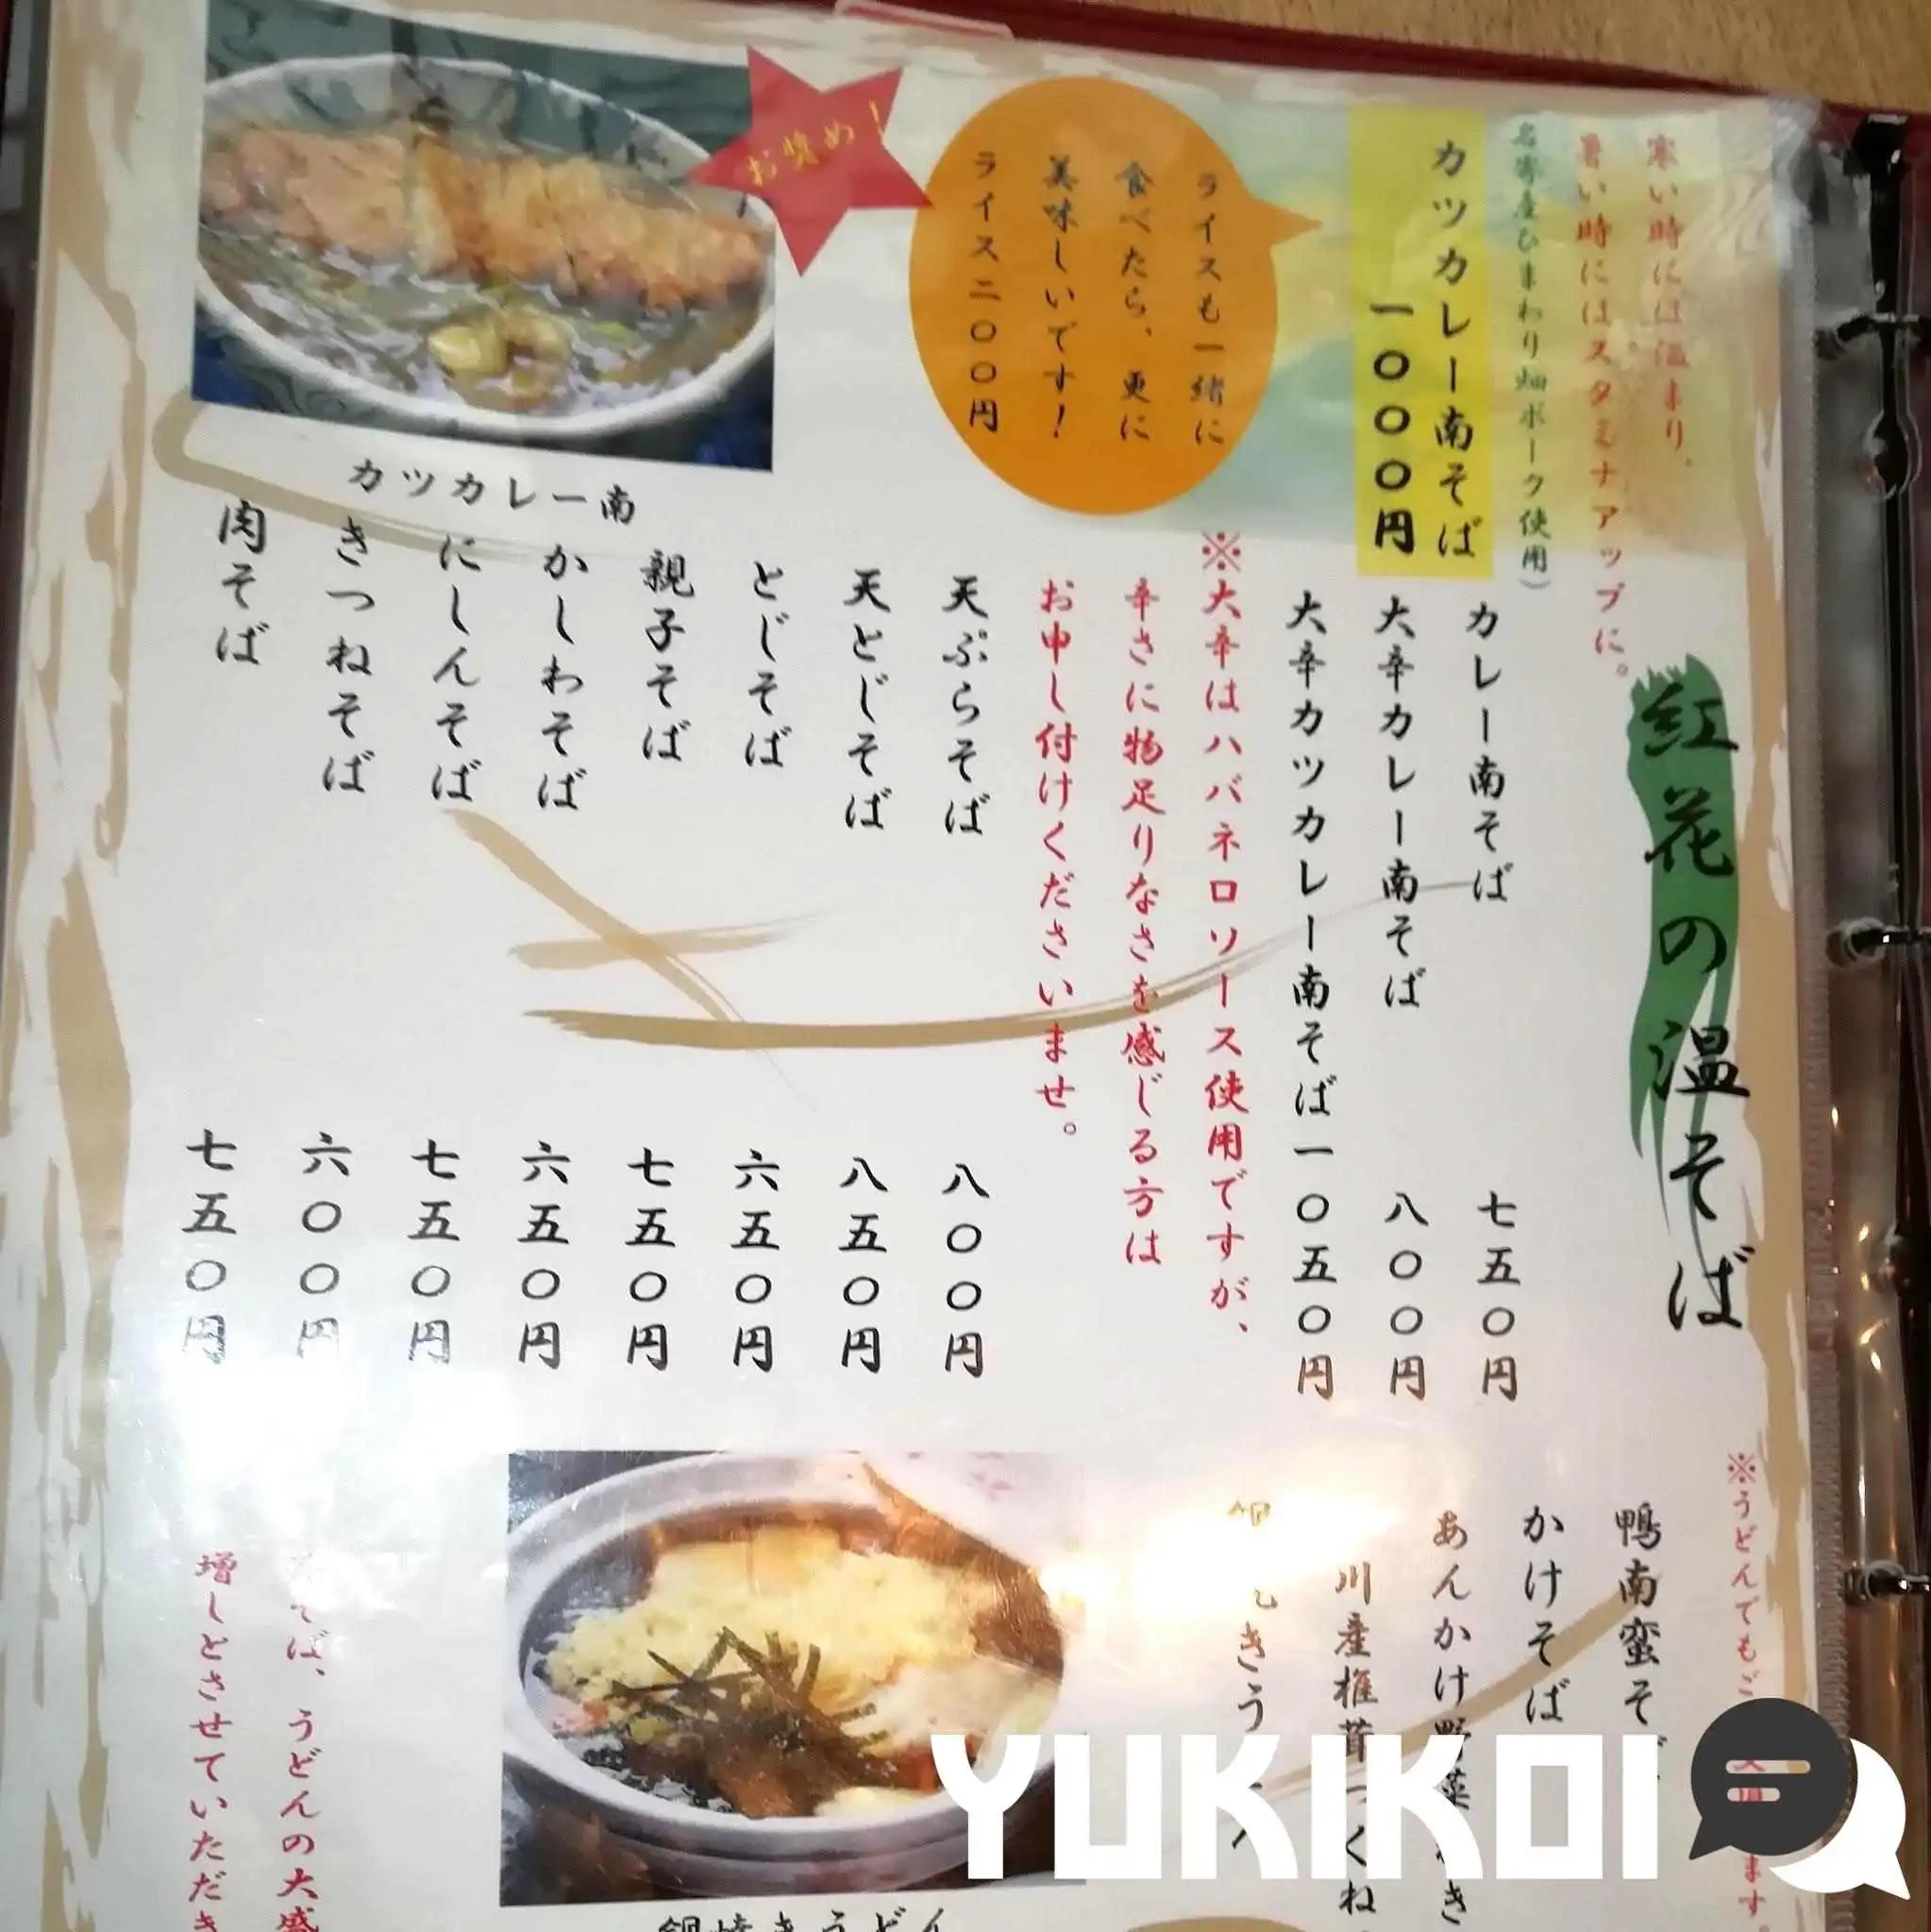 寒い時には温まり、
暑い時にはスタミナアップに。
名寄産ひまわり畑ポーク使用）
紅花の温そば
カツカレー南そば
一〇〇〇円
ライスも一緒に
食べたら、更に
美味しいです！
ライス二〇〇円
お奨め！
カツカレー南
カレー南そば 七五〇円
大辛カレー南そば 八〇〇円
大辛カツカレー南そば一〇五〇円
※大辛はハバネロソース使用ですが、
辛さに物足りなさを感じる方は
お申し付けくださいませ。
天ぷらそば 八〇〇円
天とじそば 八五〇円
とじそば 六五〇円
親子そば 七五〇円
かしわそば 六五〇円
にしんそば 七五〇円
きつねそば 六〇〇円
肉そば 七五〇円
※うどんでもご
ます。
鴨南蛮そ
かけそば
あんかけ野菜
川産椎茸つくね
きう
鍋焼きうどん
そば、うどんの大盛
増しとさせていただき
YUKIKOI